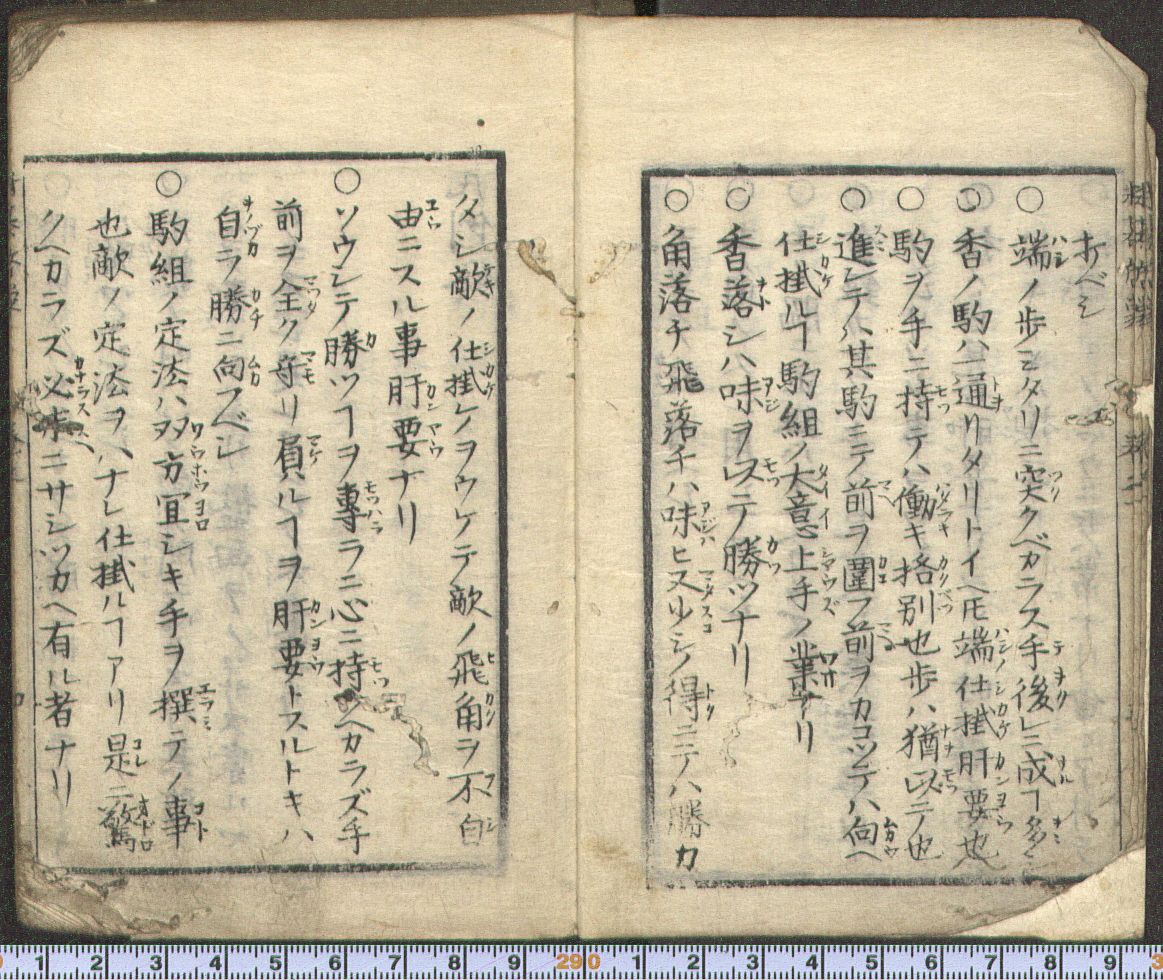 オベシ
○端ノ歩ミタリニ突クベカラス手後レニ成ヿ多シ
○香ノ駒ハ通リタリトイヘ𪜈端仕掛肝要也
○駒ヲ手ニ持テハ働キ挌別也歩ハ猶以テ也
○進ンテハ其駒ニテ前ヲ圍フ前ヲカコツテハ向ヘ
仕掛ルヿ駒組ノ大意上手ノ業ナリ
○香落シハ味ヲ以ステ勝ツナリ
○角落チ飛落チハ味ヒ又少シノ得ニテハ勝カ
タシ敵ノ仕掛ケヲウケテ敵ノ飛角ヲ不自
由ニスル事肝要ナリ
○ソウシテ勝ツヿヲ專ラニ心ニ持ツヘカラズ手
前ヲ全ク守リ負ルヿヲ肝要トスルトキハ
自ラ勝ニ向フベシ
○駒組ノ定法ハ双方宜シキ手ヲ撰テノ事
也敵ノ定法ヲハナレ仕掛ルヿアリ是ニ驚
クヘカラズ必末ニサシツカヘ有ル者ナリ